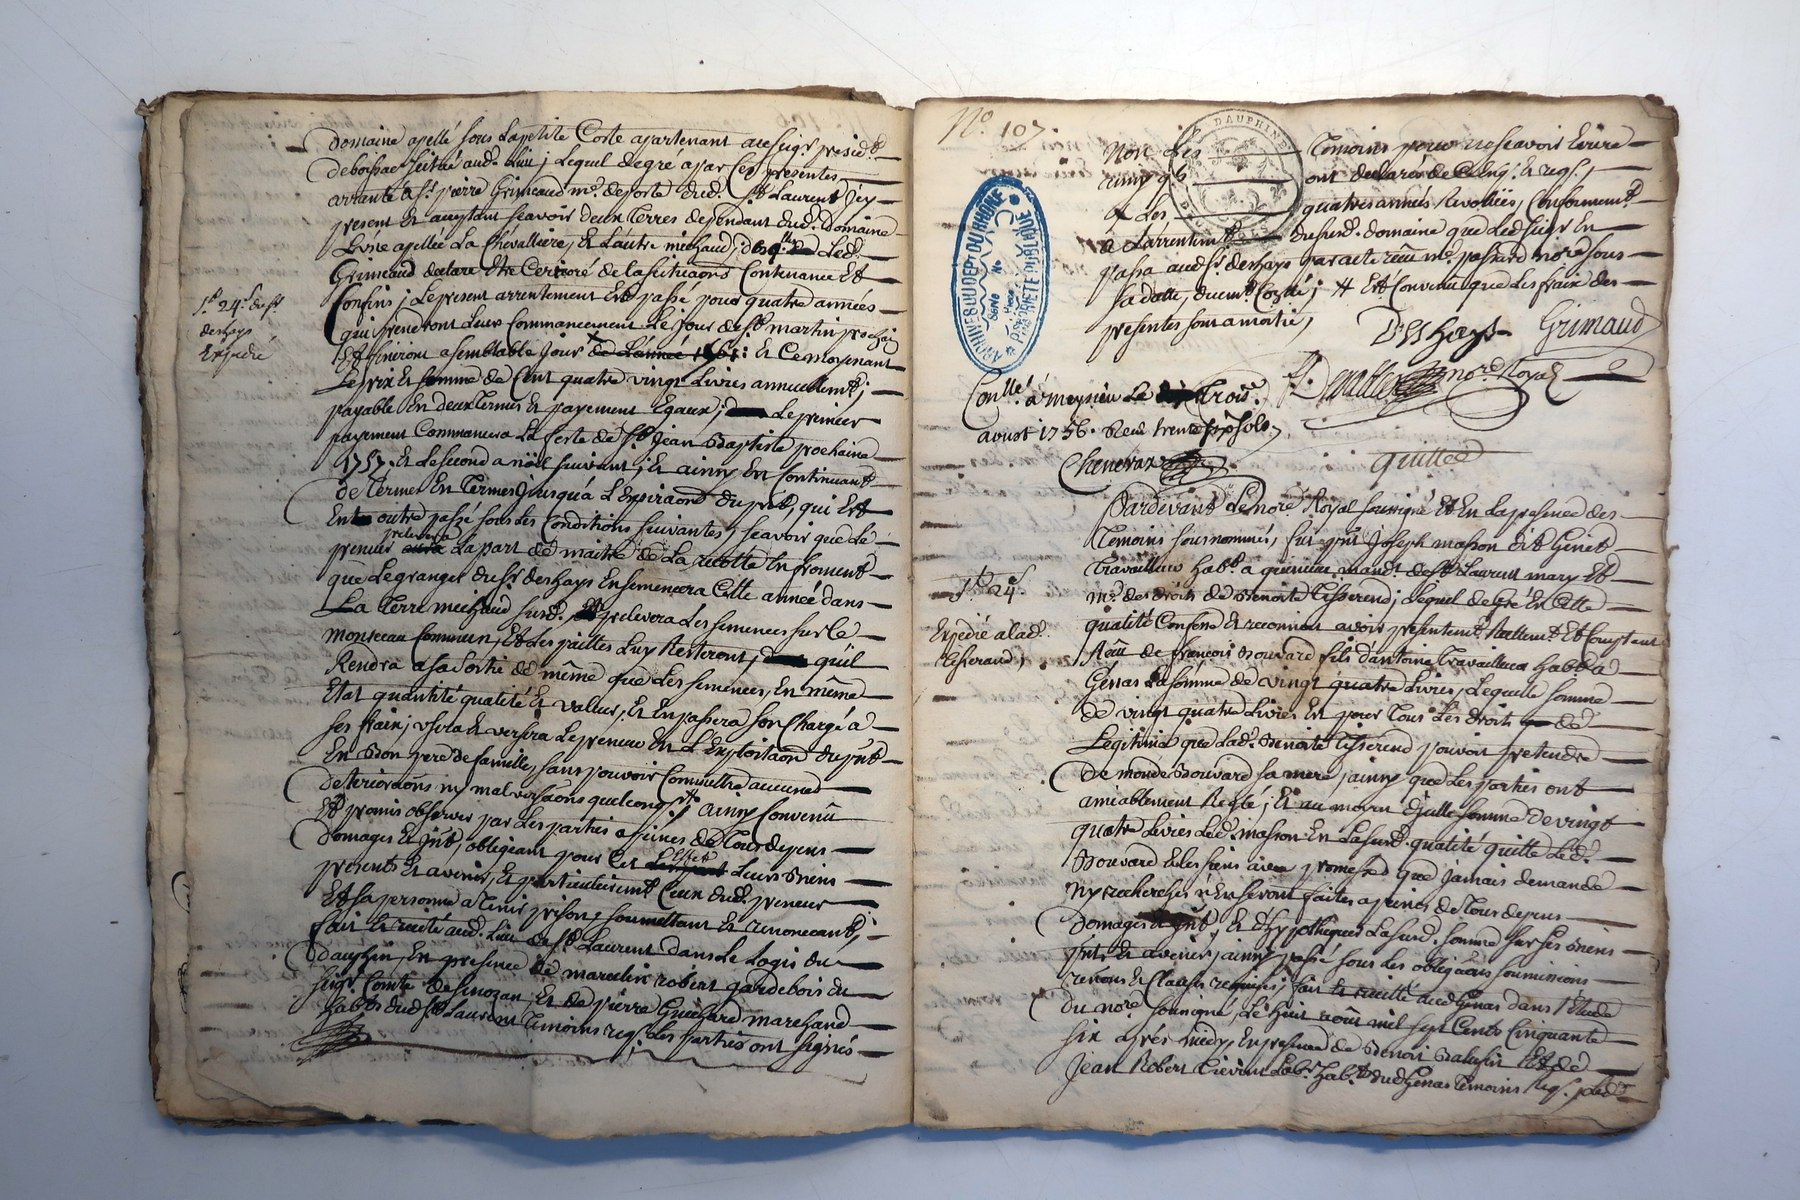 Domaine apellé sous Lapetite Coste apartenant au seigr presidt.
deboissac scitué aud. lieu ; Lequel de gré a par Ces presentes
arranté a Sr. pierre Grimaud me. de poste dud. St. Laurent Jcy
present Et aceptant scavoir deux Terres dependant dud. Domaine
Lune apellée La Chevalliere, Et Lautre michaud ; Led.
Grimaud declare Etre Cerioré de la scituaons Continance Et
Confins ; Le present arrentement Est passé pour quatre années
qui prendront Leurs Commancement Le jour de st. martin prochain
Et finiront a semblable jour de L'année 1761: Et Ce moyenant
Le prix Et somme de Cent quatre vingt Livres annuellemt. ;
payable En deux Termes Et payement Egaux ; Le premier
payement Commancera La feste de st. Jean Baptiste prochaine
1757. Et Le second a noël suivant ; Et ainsy En Continuant
de Termes En Termes Jusqu'a L'Expiraon du pnt., qui Est
Entre outre passé sous Les Conditions suivantes, scavoir que Le
prelevera
premier aura La part de maitre de La recolte En froment
que Le granger du Sr. deshays Ensemencera Cette année dans
La Terre michaud surd. prelevera Les semences sur le
monceau Commun, Et Les pailles Luy Resteront ; quil
Rendra a sa sortie de même que Les semences, En même
Etat quantité qualité Et valeur, Et En passera son Chargé a
ses frais ; usera Et versera Le preneur En L'Exploitaon du pnt.
En Bon pere de famille, sans pouvoir Commettre aucunes
deterioraons ny malversaons quelconqs. ainsy Convenu
Et promis observer par Les parties a peines de Tous depens
domages Et Jnt., obligeant pour Cet Leurs Biens
Effet
presents Et avenir, Et particulierement Ceux dud. preneur
Et sa personne a Tenir prison ; soumettant Et renoncant ;
fait Et recité aud. Lieu de st. Laurent dans Le Logis du
dauphin, En presence de marcelin robert gardebois du
seigr. Comte de sinozan, Et de pierre Guichard marchand
habts. dud. st. Laurent Temoins req. Les parties ont signés
1d. 24s. du sr.
deshays
Expedié
No. 107
DAUPHINE
Non Les Temoins pour ne scavoir Ecrire
ainsy qls ont declarés de Ce Enqs. Et reqs.,
Les quatres années Revollües, Conformemt.
a Larrentemt. du surd. domaine que Led. seigr En
passa aud. sr. deshays par acte recu me. passard nore sous
sa datte, duemt. Collé ; Et Convenu que Les frais des
presentes sont a moitié,
ARCHIVES DU DEPT DU RHONE
PROPRIETE PUBLIQUE
DesHays Grimaud
nore Royal
Conllé. a meysieu Le Trois.
aoust 1756. Recu trente sols
Chenevaz
quittce
Pardevant Le nore Royal soussigné Et En La presence des
Temoins sousnommés, fut pnt Joseph masson dit Genet
Travailleur habt. a grenieu mandt. de st. Laurent mary Et
me. des droits de Benoite Tisserend ; Lequel de Gré En Cette
qualité Confesse Et reconnoit avoir presentemt. Reellemt. Et Comptant
Recu de francois Bouvard fils d'antoine Travailleur habt. a
Génas La somme de vingt quatre Livres, Laquelle somme
de vingt quatre Livres Est pour Tous Les droits de
Legitime que Lad. Benoite Tisserend pouvoit pretendre
de monde Bouvard sa mere, ainsy que Les parties ont
amiablement Reglé ; Et au moyen d'jcelle somme de vingt
quatre Livres Led. masson En La surd. qualité quitte Led.
Bouvard Et les siens avec promesse que jamais demande
ny recherches n'En seront faites a peines de Tous depens
domages Et Jnt., Et d'hypothequer La surd. somme sur ses Biens
pnts Et avenir, ainsy passé sous Les obligaons soumissions
renons Et Clauses requises ; fait Et recitté aud. Genas dans l'Etude
du nore soussigné, Le huit aoust mil sept Cents Cinquante
six aprés midy, En presence de Benoit Et de
Jean Robert Labr. habts. dud. Genas Temoins Reqs.
1d. 24s
Expedié a lad.
Tisserand